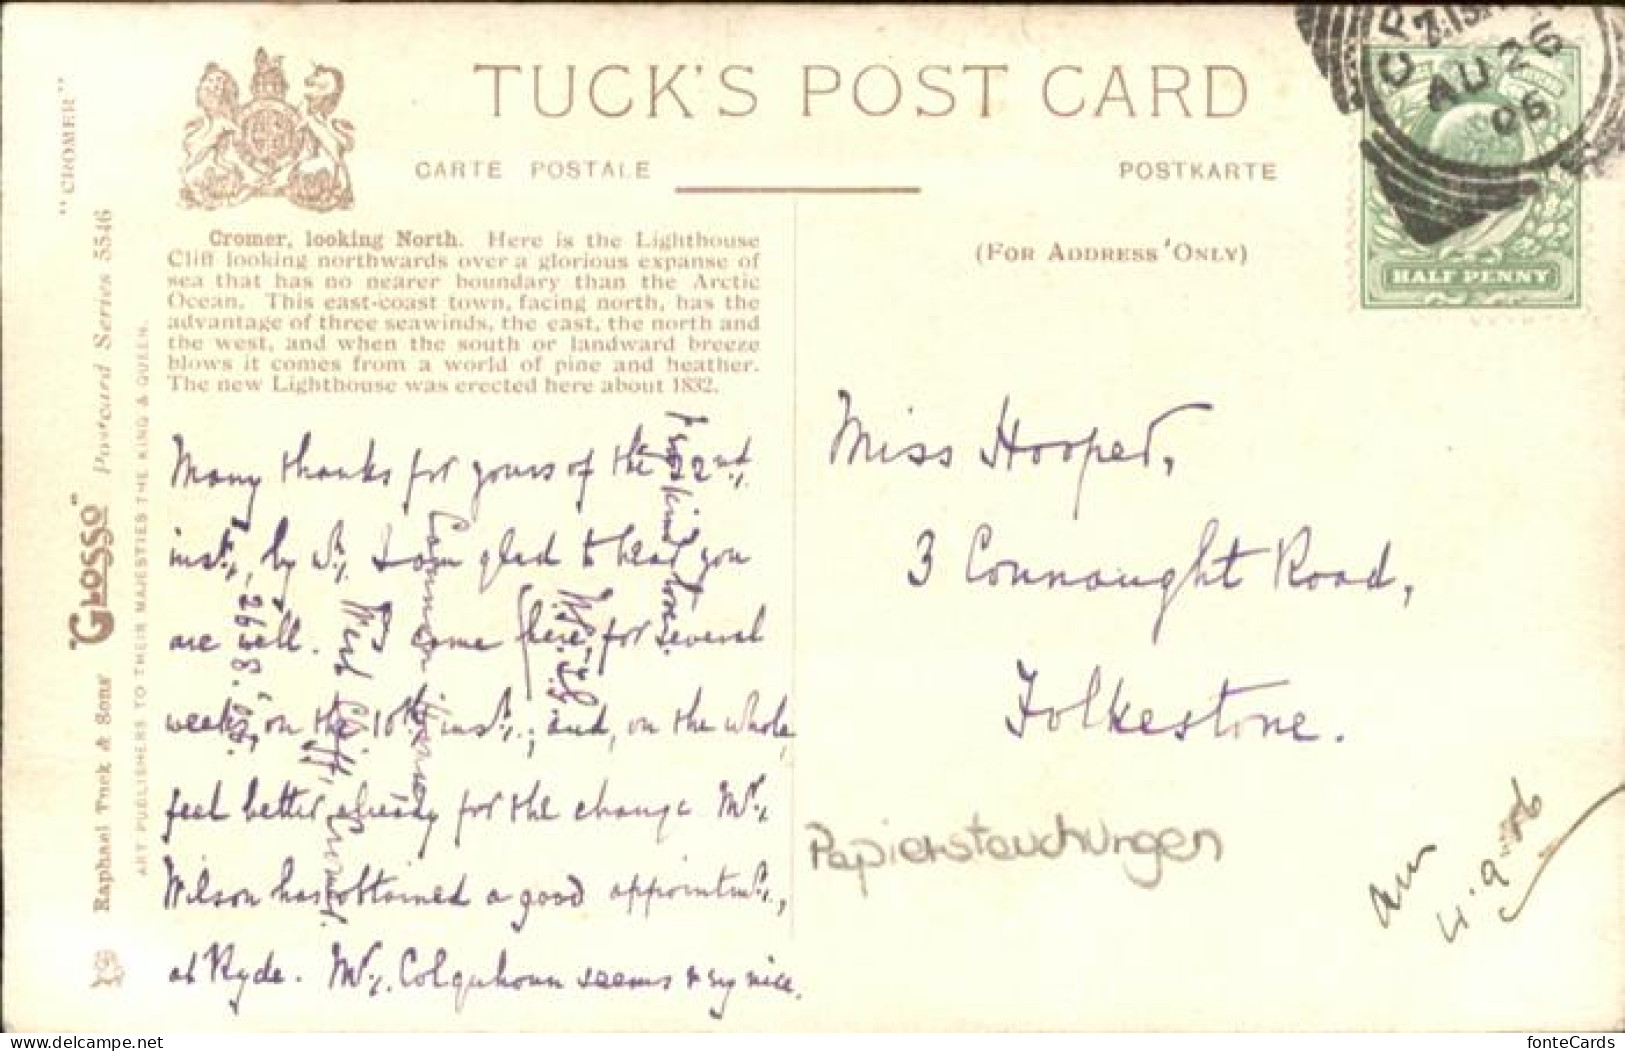 TUCK'S POST CARD
CARTE POSTALE
POSTKARTE
(FOR ADDRESS ONLY)
"CROMER"
"GLOSSO" Postcard Series 5546
Raphael Tuck & Sons'
ART PUBLISHERS TO THEIR MAJESTIES THE KING & QUEEN.
Cromer, looking North. Here is the Lighthouse
Cliff looking northwards over a glorious expanse of
sea that has no nearer boundary than the Arctic
Ocean. This east-coast town, facing north, has the
advantage of three seawinds, the east, the north and
the west, and when the south or landward breeze
blows it comes from a world of pine and heather.
The new Lighthouse was erected here about 1832.
Many thanks for yours of the 22nd,
inst., by I am glad to hear you
are well. I came here for several
weeks, on the 10th, inst.; and, on the whole,
feel better already for the change. Mr.
Wilson has obtained a good appointmt.,
at Ryde. Mr. Colquhoun seems very nice.
kind love.
House,
West Cliff,
Cromer.
26.8.06.
Miss Hooper,
3 Connaught Road,
Folkestone.
AU 26
06
HALF PENNY
Papierstauchungen
an
4.9.06
Ansichtskarte
fonteCards